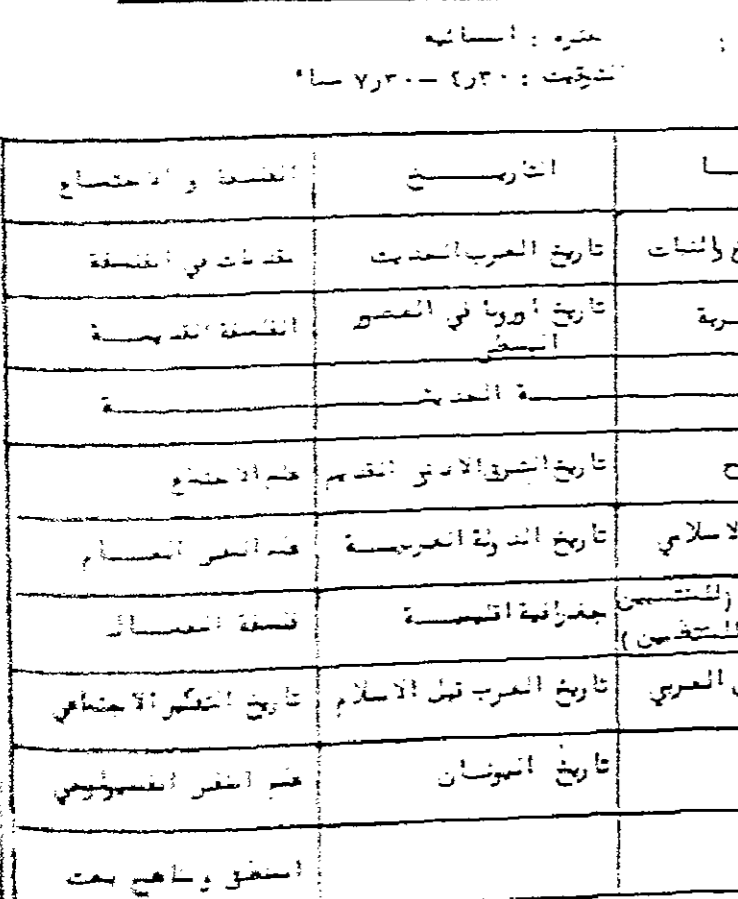 التوقيت : ٤٫٣٠ – ٧٫٣٠ مساء
التاريـــخ الفلسفة و الاجتماع
والنبات تاريخ العرب الحديث مقدمات في الفلسفة
تاريخ أوروبا في العصور الفلسفة القديمـــة
الوسطى
ـة الحديثـــــة
تاريخ الشرق الادنى القديم علم الاجتماع
الاسلامي تاريخ الدولة العربيـــة علم النفس العـــام
جغرافية اقليميـــة فلسفة الجمـــال
العربي تاريخ العرب قبل الاسلام تاريخ التفكير الاجتماعي
تاريخ اليونــان علم النفس الفسيولوجي
المنطق ومناهج بحث